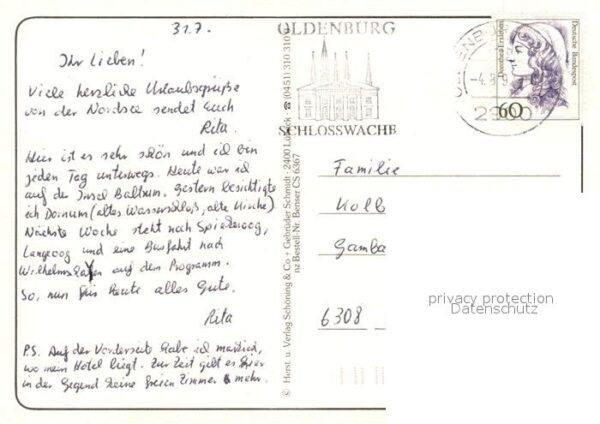 31.7.
Ihr Lieben!
Viele herzliche Urlaubsgrüße
von der Nordsee sendet Euch
Rita.
Hier ist es sehr schön und ich bin
jeden Tag unterwegs. Heute war ich
auf der Insel Baltrum. Gestern besichtigte
ich Dornum (altes Wasserschloß, alte Kirche)
Nächste Woche steht noch Spiekeroog,
Langeoog und eine Busfahrt nach
Wilhelmshafen auf dem Programm.
So, nun für heute alles Gute.
Rita
P.S. Auf der Vorderseite habe ich markiert,
wo mein Hotel liegt. Zur Zeit gibt es hier
in der Gegend keine freien Zimmer mehr.
© Horst. u. Verlag Schöning & Co + Gebrüder Schmidt · 2400 Lübeck · ☎ (0451) 310 310
nz Bestell-Nr. Benser CS 6367
OLDENBURG
SCHLOSSWACHE
OLDENBURG
-4.8.9
2900
Dorothea Erxleben
Deutsche Bundespost
60
Familie
Kolb
Gamba
6308
privacy protection
Datenschutz